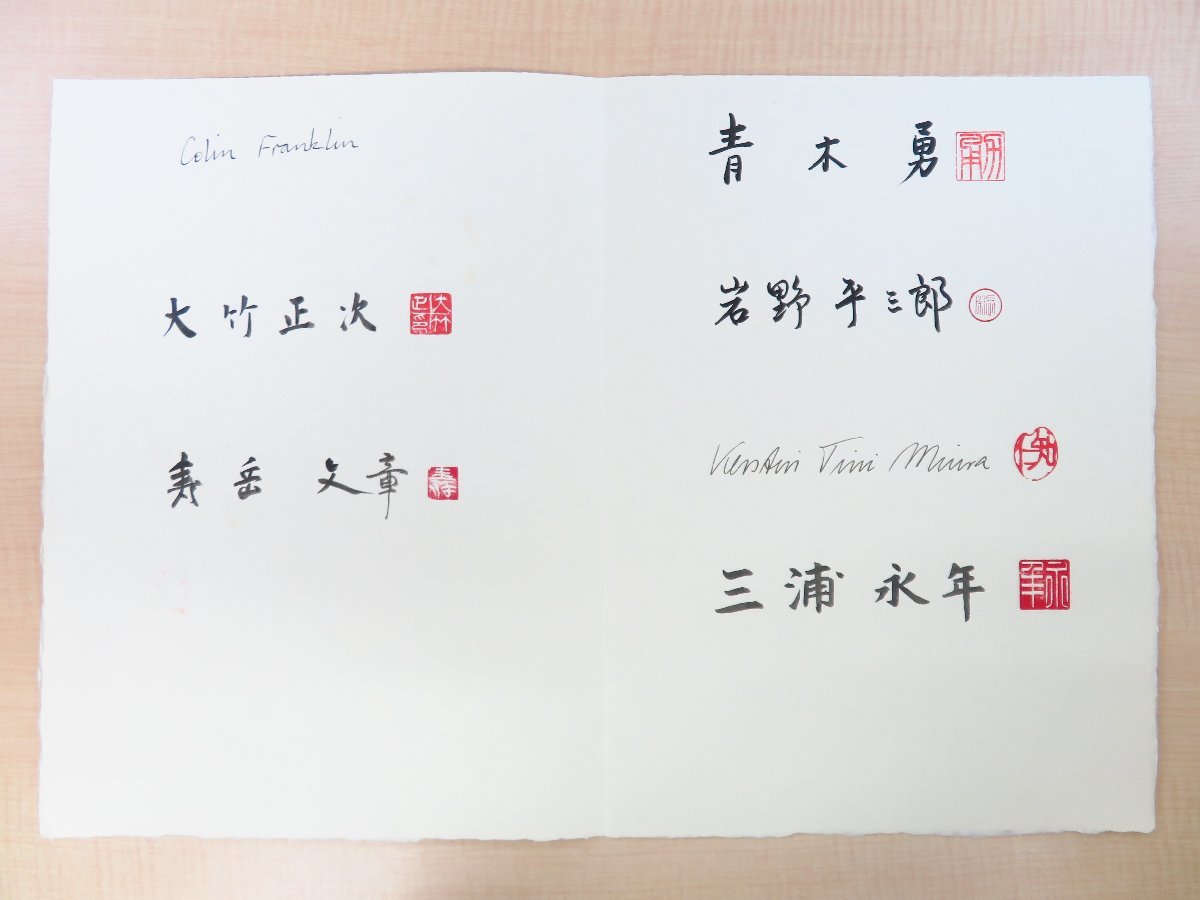 Colin Franklin
大竹正次
寿岳 文章
青木 勇
岩野平三郎
Kerstin Tini Miura
三浦永年